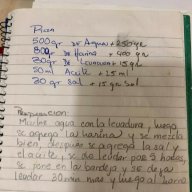 Pizza
500gr de Agua + 250 gr
800 de Harina + 400 gr
30gr de Levadura + 15 gr
50ml Aceite + 25 ml
30 gr Sal + 15 gr Sal
Preparacion:
Mezclar agua con la levadura, luego
se agrega la harina y se mezcla
bien, despues se agrega la sal y
el aceite, se de leudar por 2 horas,
se pone en las bandejas y se deja
leudar 30min mas y luego al horno